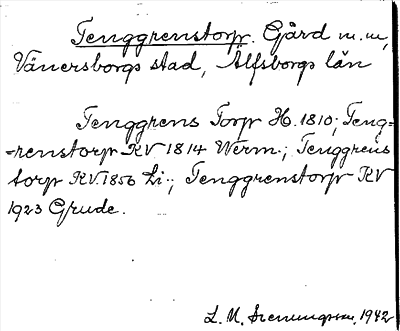 Tenggrenstorp. Gård m.m,
Vänersborgs stad, Älfsborgs län
Tenggrens Torp H. 1810; Teng-
-renstorp KV 1814 Werm.; Tenggrens
torp KV. 1856 Li.; Tenggrenstorp KV
1923 Grude.
L. M. 1942